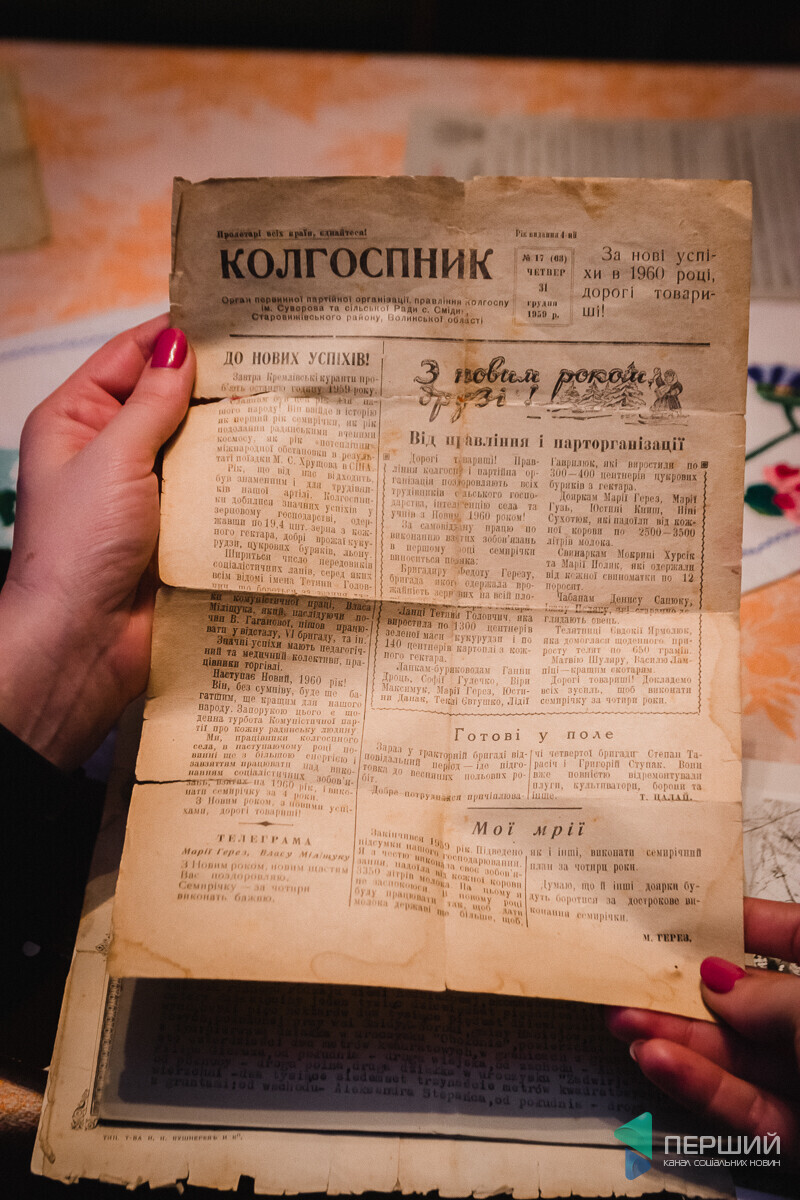 Пролетарі всіх країн, єднайтеся!
Рік видання 4-ий
КОЛГОСПНИК
№ 17 (63)
ЧЕТВЕР
31
грудня
1959 р.
За нові успі-
хи в 1960 році,
дорогі товари-
ші!
Орган первинної партійної організації, правління колгоспу
ім. Суворова та сільської Ради с. Смідин,
Старовижівського району, Волинської області
ДО НОВИХ УСПІХІВ!
Завтра Кремлівські куранти про-
б'ють останню годину 1959 року.
ного народу! Він ввійде в історію
як перший рік семирічки, як рік
недолання радянськими вченими
космосу, як рік «потепління»
міжнародної обстановки в резуль-
таті поїздки М. С. Хрущова в США.
Рік, що від нас відходить,
був знаменним і для трудівни-
ків нашої артілі. Колгоспни-
ки добилися значних успіхів у
зерновому господарстві, одер-
жавши по 19,4 цнт. зерна з кож-
ного гектара, добрі врожаї куку-
рудзи, цукрових буряків, льону.
Шириться число передовиків
соціалістичних ланів, серед яких
всім відомі імена Тетяни Голов-
ки комуністичної праці, Власа
Міліщука, який, наслідуючи по-
чин В. Гаганової, пішов працю-
вати у відсталу, VI бригаду, та ін.
Значні успіхи мають педагогіч-
ний та медичний колективи, пра-
цівники торгівлі.
Наступає Новий, 1960 рік!
Він, без сумніву, буде ще ба-
гатшим, ще кращим для нашого
народу. Запорукою цього є що-
денна турбота Комуністичної пар-
тії про кожну радянську людину
Ми, працівники колгоспного
села, в наступаючому році по-
винні ще з більшою енергією і
завзяттям працювати над вико-
нанням соціалістичних зобов'я-
зань, взятих на 1960 рік, і вико-
нати семирічку за 4 роки.
З Новим роком, з новими успі-
хами, дорогі товариші!
ТЕЛЕГРАМА
Марії Герез, Власу Міліщуку
З Новим роком, новим щастям
Вас поздоровляю.
Семирічку — за чотири
виконать бажаю.
З новим роком,
друзі!
Від правління і парторганізації
Дорогі товариші! Прав-
ління колгоспу і партійна ор-
ганізація поздоровляють всіх
трудівників сільського госпо-
дарства, інтелігенцію села та
учнів з Новим, 1960 роком!
За самовіддану працю по
виконанню взятих зобов'язань
в першому році семирічки
виноситься подяка:
Бригадиру Федоту Герезу,
бригада якого одержала про-
жайність зернових на всій пло-
Ланці Тетяні Головчич, яка
виростила по 1300 центнерів
зеленої маси кукурудзи і по
140 центнерів картоплі з кож-
ного гектара.
Ланкам-буряководам Ганни
Дроць, Софії Гулечко, Віри
Максимук, Марії Герез, Юсти-
ни Панак, Теклі Євтушко, Лідії
Гаврилюк, які виростили по
300—400 центнерів цукрових
буряків з гектара.
Дояркам Марії Герез, Марії
Гузь, Юстині Книш, Ніні
Сухотюк, які надоїли від кож-
ної корови по 2500—3500
літрів молока.
Свинаркам Мокрині Хурсік
та Марії Поляк, які одержали
від кожної свиноматки по 12
поросят.
Чабанам Денису Сацюку,
Івану Поляку, які старанно до-
глядають овець.
Телятниці Євдокії Ярмолюк,
яка домоглася щоденного при-
росту телят по 650 грамів.
Матвію Шуляру, Василю Лам-
ніні — кращим скотарям.
Дорогі товариші! Докладемо
всіх зусиль, щоб виконати
семирічку за чотири роки.
Готові у поле
Зараз у тракторній бригаді від-
повідальний період — іде підго-
товка до весняних польових ро-
біт.
Добре потрудилися причіплюва-
чі четвертої бригади Степан Та-
расіч і Григорій Ступак. Вони
вже повністю відремонтували
плуги, культиватори, борони та
інше.
Т. ЦАЛАЙ.
Мої мрії
Закінчився 1959 рік. Підведено
підсумки нашого господарювання.
Я з честю виконала своє зобов'я-
зання, надоїла від кожної корови
3350 літрів молока. На цьому я
не заспокоююсь. В новому році
буду працювати так, щоб дати
молока державі ще більше, щоб,
як і інші, виконати семирічний
план за чотири роки.
Думаю, що й інші доярки бу-
дуть боротися за дострокове ви-
конання семирічки.
М. ГЕРЕЗ.
kwadratowych
od południe - droga
tysiące siedemset trzynaście metrów kwadratowych
w gruntach; od wschodu - Aleksandra Stepańca, od południe -
ПЕРШИЙ
КАНАЛ СОЦІАЛЬНИХ НОВИН